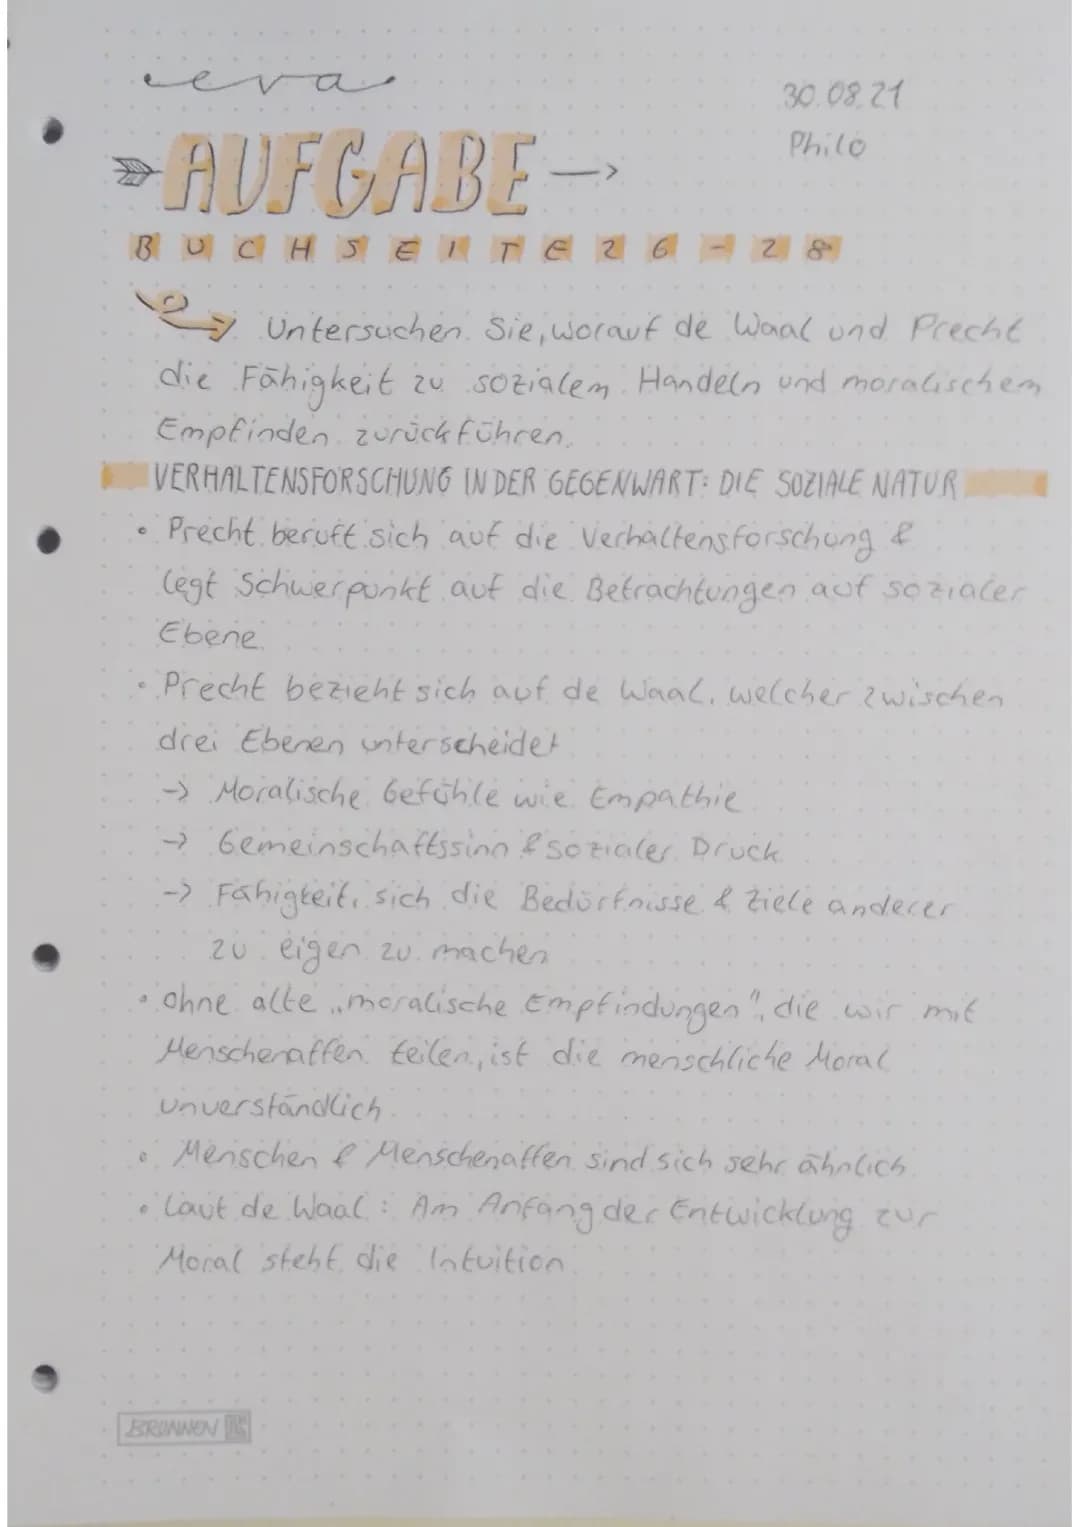 eva
30.08.21
Philo
AUFGABE
BUCHSEITE 26-28
Untersuchen Sie, worauf de Waal und Precht
die Fähigkeit zu sozialem Handeln und moralischem
Empfinden zurückführen.
VERHALTENSFORSCHUNG IN DER GEGENWART: DIE SOZIALE NATUR
• Precht beruft sich auf die Verhaltensforschung &
legt Schwerpunkt auf die Betrachtungen auf sozialer
Ebene.
• Precht bezieht sich auf de Waal, welcher zwischen
drei Ebenen unterscheidet
-> Moralische Gefühle wie Empathie
-> Gemeinschaftssinn & sozialer Druck
-> Fähigkeit, sich die Bedürfnisse & Ziele anderer
zu eigen zu machen
• Ohne alte „moralische Empfindungen", die wir mit
Menschenaffen teilen, ist die menschliche Moral
unverständlich.
• Menschen & Menschenaffen sind sich sehr ähnlich
• Laut de Waal: Am Anfang der Entwicklung zur
Moral steht die Intuition.
BRUNNEN